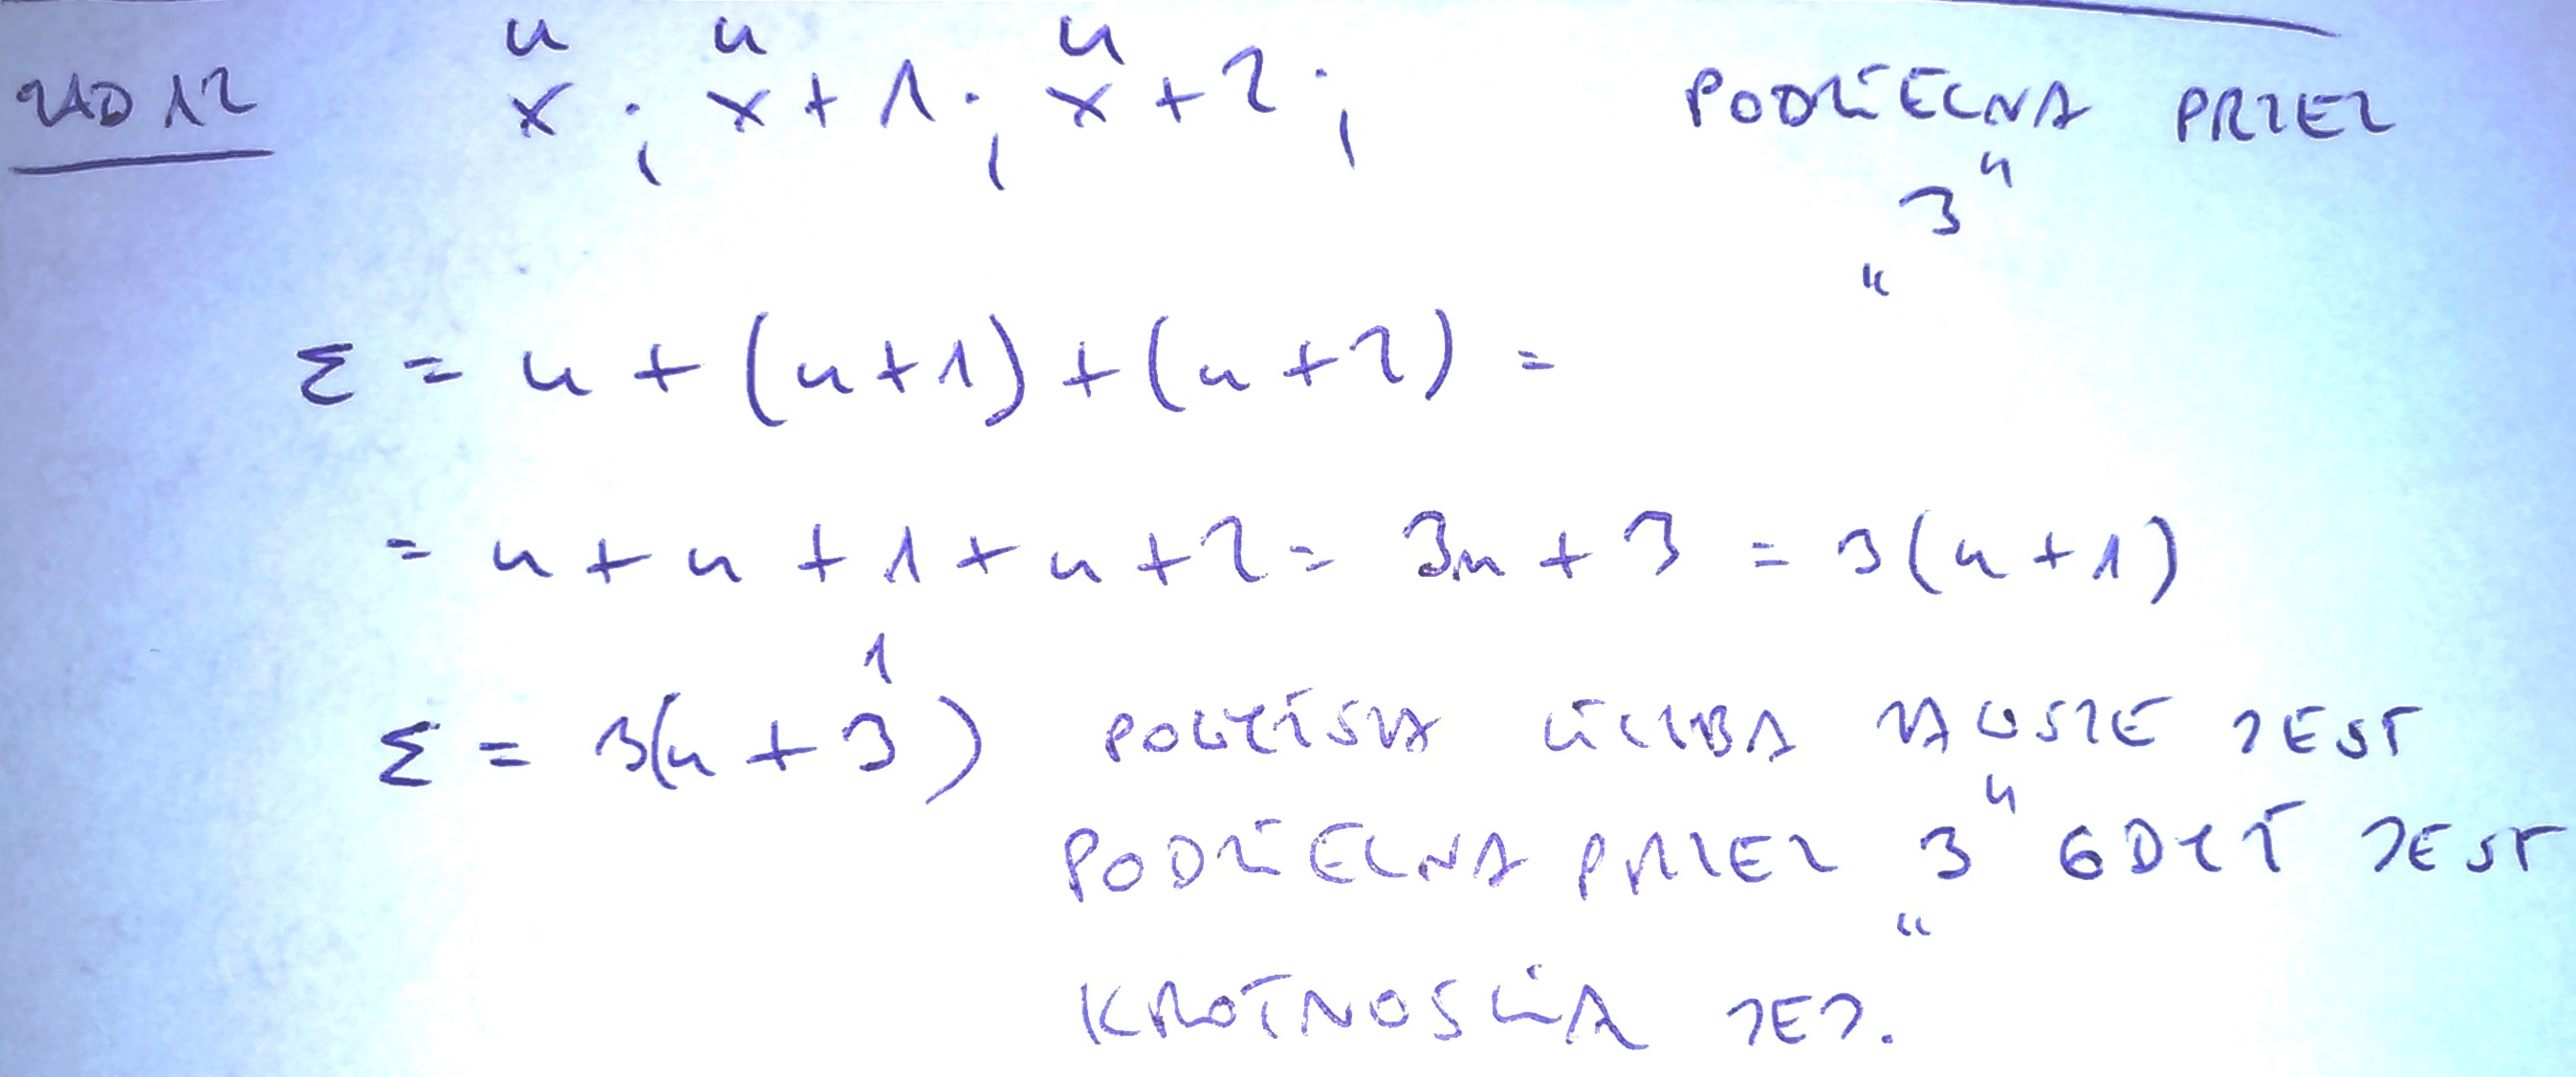 ZAD 12 n n n
x ; x + 1 ; x + 2 ; PODZIELNA PRZEZ
„3”
Σ = n + (n+1) + (n+2) =
= n + n + 1 + n + 2 = 3n + 3 = 3(n+1)
1
Σ = 3(n + 3) POWYŻSZA LICZBA ZAWSZE JEST
PODZIELNA PRZEZ „3” GDYŻ JEST
KROTNOSCIA JEJ.